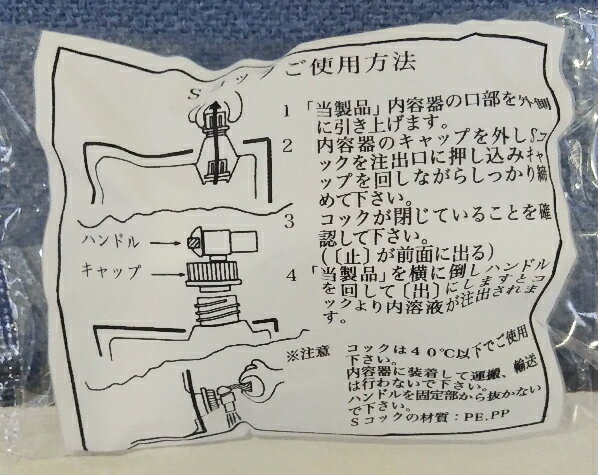 Sコックご使用方法
1 「当製品」内容器の口部を外側
に引き上げます。
2 内容器のキャップを外しSコ
ックを注出口に押し込みキャ
ップを回しながらしっかり締
めて下さい。
3 コックが閉じていることを確
認して下さい。
(〔止〕が前面に出る)
4 「当製品」を横に倒しハンドル
を回して〔出〕にしますとコ
ックより内溶液が注出されま
す。
ハンドル
キャップ
※注意 コックは40℃以下でご使用
下さい。
内容器に装着して運搬、輸送
は行わないで下さい。
ハンドルを固定部から抜かない
で下さい。
Sコックの材質:PE.PP